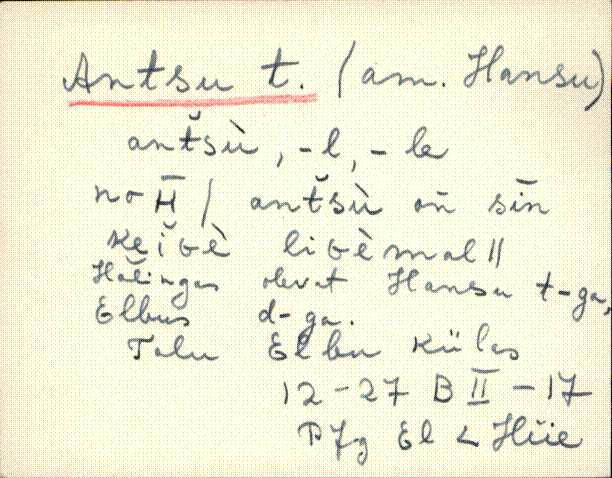 Antsu t. (am. Hansu)
antš̆ù, -l, -le
noH̄ / antš̆ù on̄ sīn
keiʙè liʙèmal ||
Hälingas olevat Hansu t-ga,
Elbus d-ga.
Talu Elbu külas
12-27 B II -17
El < Hiie